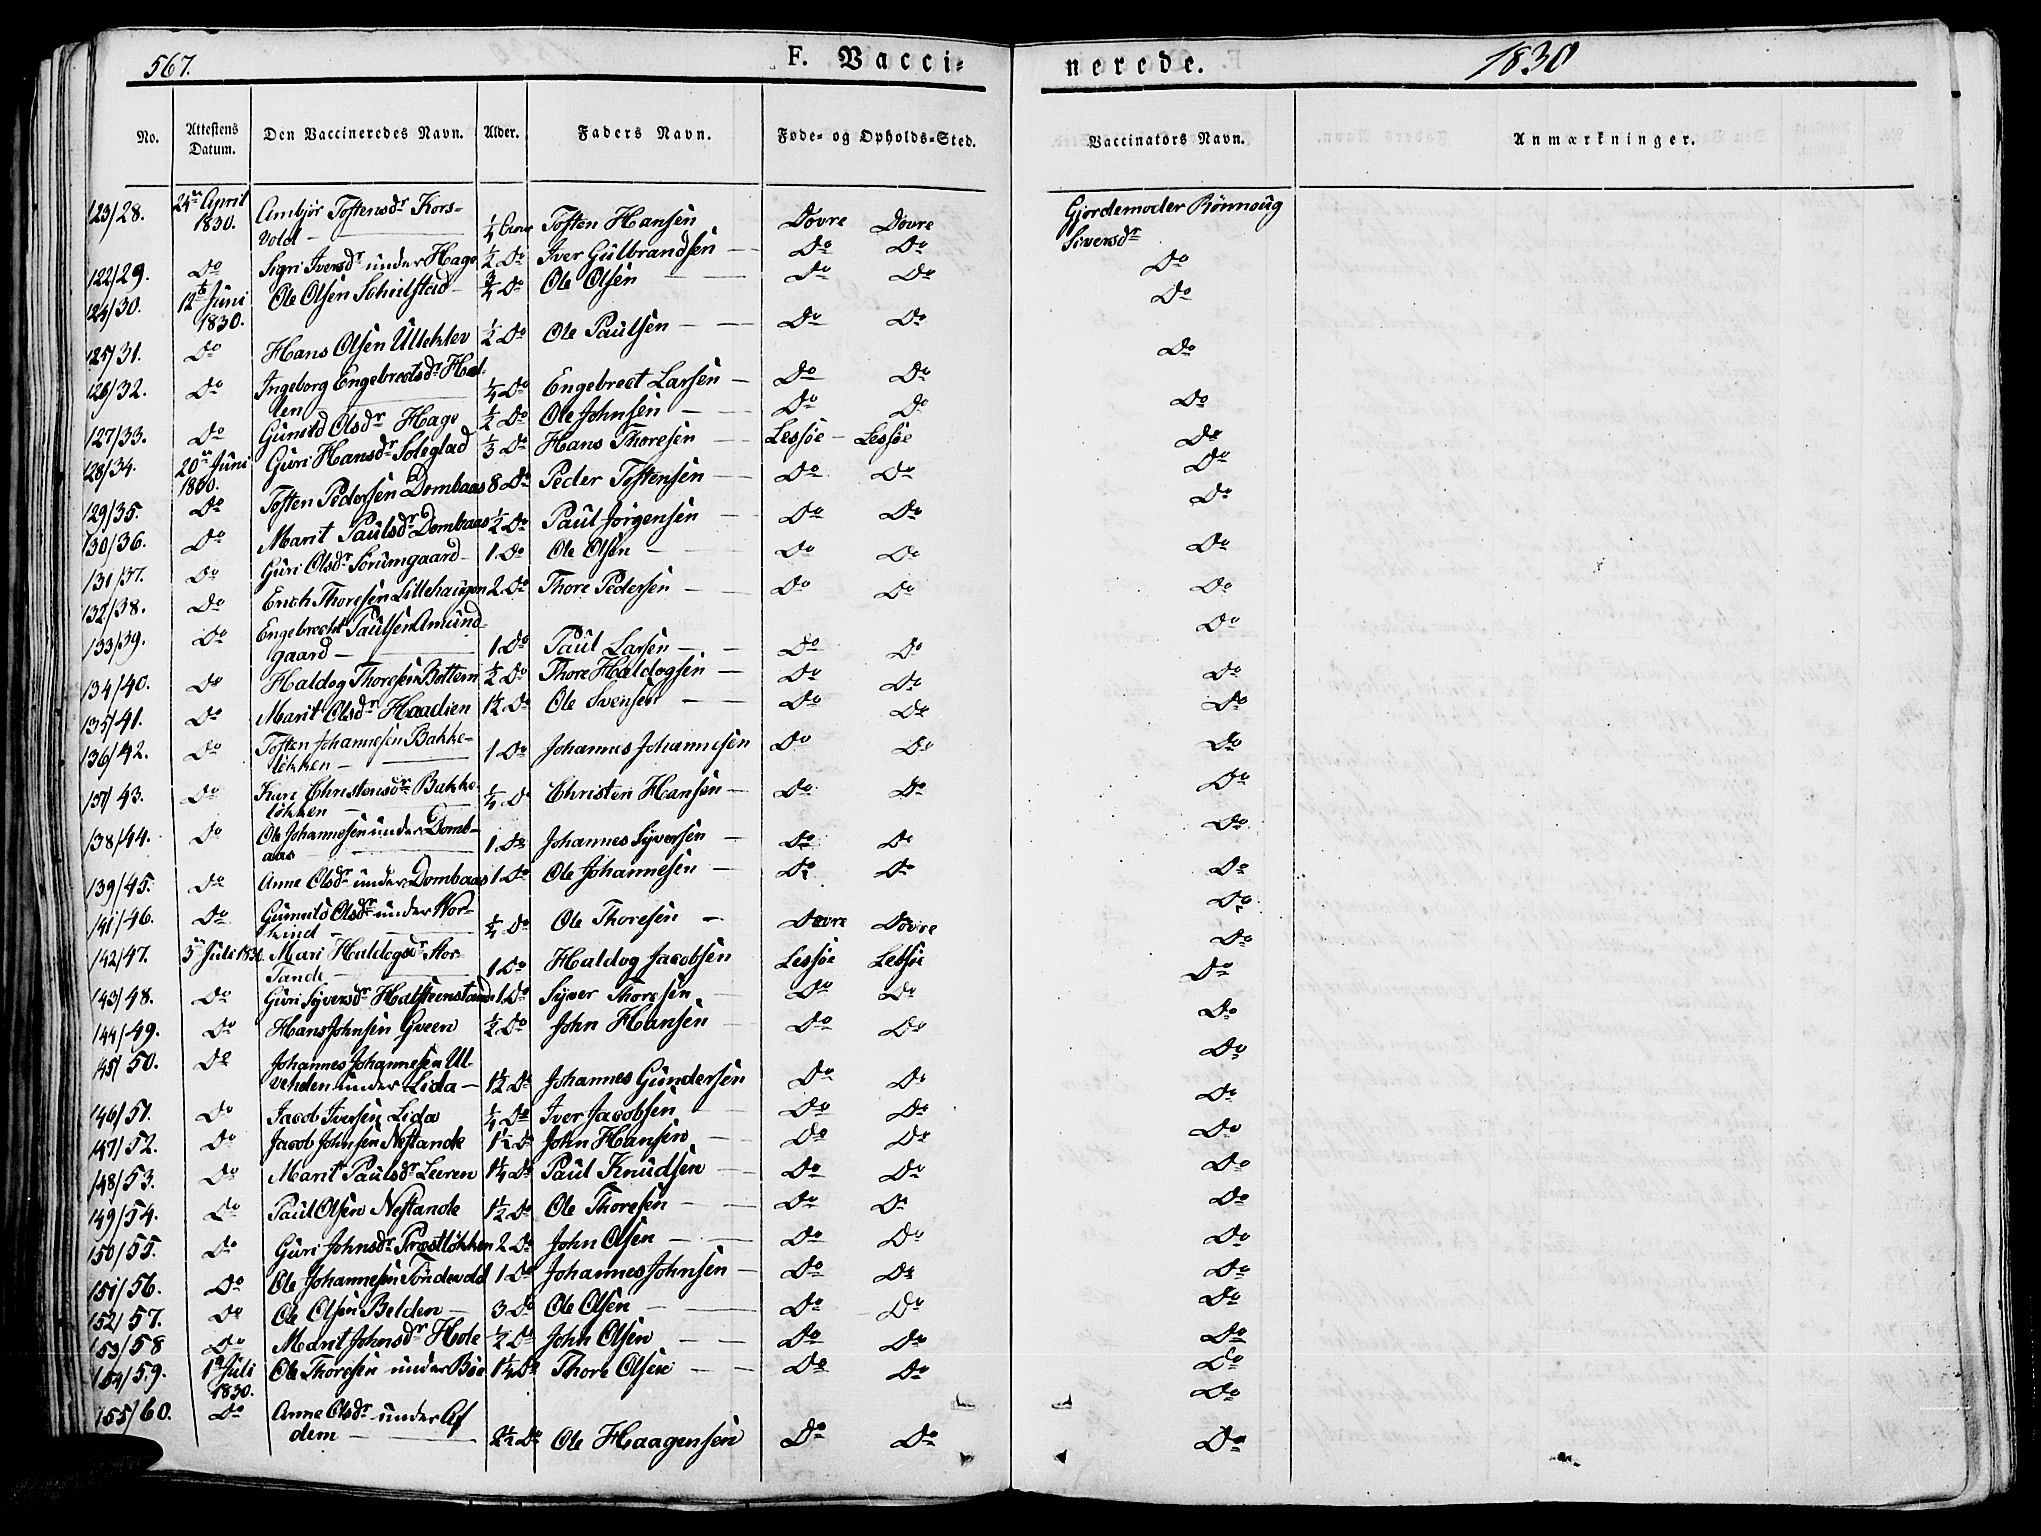 567.
F. Vacci-
nerede.
1830
No.
Attestens Datum.
Den Vaccineredes Navn.
Alder.
Faders Navn.
Føde- og Opholds-Sted.
Vaccinators Navn.
Anmærkninger.
123/28. 24de April 1830. Ambjör Tostensdr Kors-
vold — 1/4 Tosten Hansen Dovre Dovre Gjordemoder Rönnaug Siversdr
122/29. Do Sigri Iversdr under Hage 1/2 Do Iver Gulbrandsen — Do Do Do
124/30. 12te Juni 1830. Ole Olsen — 3/4 Do Ole Olsen — Do Do Do
125/31. Do Hans Olsen Ulleklev 1/2 Do Ole Paulsen — Do Do Do
126/32. Do Ingeborg Engebrectsdr Hat-
len 1/4 Do Engebrect Larsen — Do Do Do
127/33. Do Gunild Olsdr Hage 1/2 Do Ole Johnsen — Do Do Do
128/34. 20de Juni 1830. Guri Hansdr Soleglad 1/3 Do Hans Thoresen — Lessöe — Lessöe Do
129/35. Do Tosten Pedersen Dombaas 8 Do Peder Tostensen — Do Do Do
130/36. Do Marit Paulsdr Dombaas 1/2 Do Paul Jörgensen — Do Do Do
131/37. Do Guri Olsdr Sörumgaard 1 Do Ole Olsen — Do Do Do
132/38. Do Erich Thoresen Lillehaugen 2 Do Thore Pedersen — Do Do Do
133/39. Do Engebrecht Paulsen Amund-
gaard — 1 Do Paul Larsen — Do Do Do
134/40. Do Haldog Thoresen Bottem 1/2 Do Thore Haldogsen — Do Do Do
135/41. Do Marit Olsdr Haadien 1 1/2 Do Ole Svensen — Do Do Do
136/42. Do Tosten Johannesen Bakke-
lökken — 1 Do Johannes Johannesen Do Do Do
137/43. Do Kari Christensdr Bakke-
lökken — 1/4 Do Christen Hansen — Do Do Do
138/44. Do Ole Johannesen under Domb-
aas — 1 Do Johannes Syversen — Do Do Do
139/45. Do Anne Olsdr under Dombaas 1 Do Ole Johannesen — Do Do Do
141/46. Do Gunnild Olsdr under
1/4 Do Ole Thoresen — Dovre Dovre Do
142/47. 5te Juli 1830. Mari Haldogsdr Nor-
stande — 1 Do Haldog Jacobsen Lessöe Lessöe Do
143/48. Do Guri Syversdr 1 Do Syver Thoresen — Do Do Do
144/49. Do Hans Johnsen Qveen 1/2 Do John Hansen — Do Do Do
145/50. Do Johannes Johannesen Ul-
venden under Lida — 1 1/2 Do Johannes Gundersen Do Do Do
146/51. Do Jacob Iversen Lida 1/4 Do Iver Jacobsen — Do Do Do
147/52. Do Jacob Johnsen Nestande 1 1/2 Do John Hansen — Do Do Do
148/53. Do Marit Paulsdr Leeren 1 1/4 Do Paul Knudsen — Do Do Do
149/54. Do Paul Olsen Nestande 1 1/2 Do Ole Thoresen — Do Do Do
150/55. Do Guri Johnsdr Præstlökken 2 Do John Olsen — Do Do Do
151/56. Do Ole Johannesen Töndevold 1 Do Johannes Johnsen — Do Do Do
152/57. Do Ole Olsen Belden — 3 Do Ole Olsen — Do Do Do
153/58 Do Marit Johnsdr Hole 1/2 Do John Olsen — Do Do Do
154/59. 1ste Juli 1830. Ole Thoresen under Böe 1 1/4 Do Thore Olsen — Do Do Do
155/60. Do Anne Olsdr under Af
dem — 2 1/2 Do Ole Haagensen Do Do Do